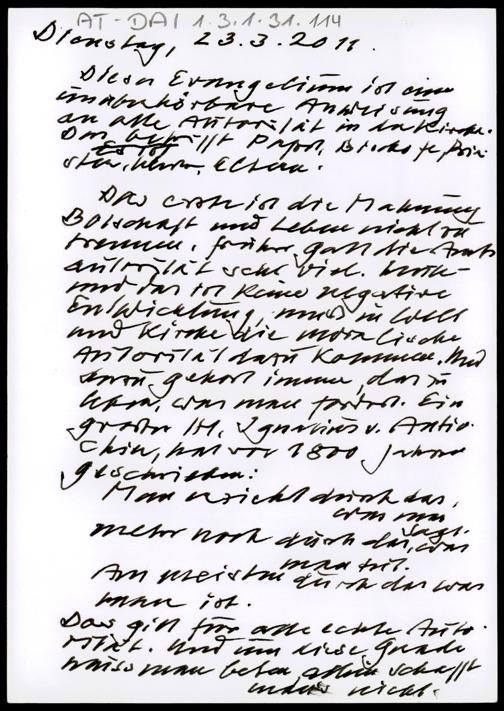 AT-DAI 1.3.1.31.114
Dienstag, 23.3.2011.
Dieses Evangelium ist eine
unüberhörbare Anweisung
an alle Autorität in der Kirche.
Das betrifft Papst, Bischöfe, Prie-
ster, Lehrer, Eltern.
Das erste ist die Mahnung
Botschaft und Leben nicht zu
trennen. Früher galt die Amts
autorität sehr viel. Heute
und das ist keine negative
Entwicklung, muß in Welt
und Kirche die moralische
Autorität dazu kommen. Und
dazu gehört immer, das zu
leben, was man fordert. Ein
großer Hl., Ignatius v. Antio-
chien, hat vor 1800 Jahren
geschrieben:
Man erzieht durch das,
was man
sagt.
mehr noch durch das, was
man tut.
Am meisten durch das was
man ist.
Das gilt für alle echte Auto-
rität. Und um diese Gnade
muss man beten, allein schafft
man's nicht.